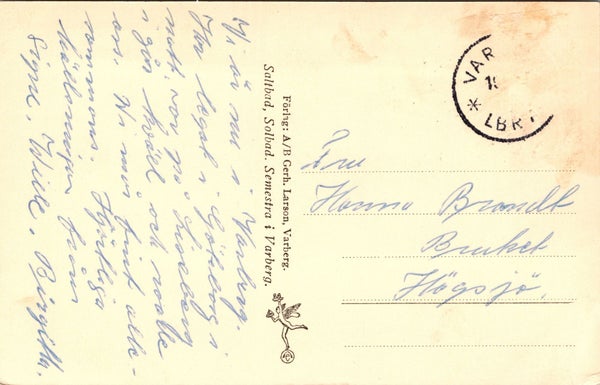 Vi är nu i Varberg.
Har legat i Göteborg i
natt, var på Liseberg
i går kväll och roade
oss. Vi mår fint alle-
sammans. Hjärtliga
hälsningar från
Signe, Wille, Birgitta.
Förlag: A/B Gerh. Larson, Varberg.
Saltbad, Solbad. Semestra i Varberg.
VAR
* LBR
Fru
Hanna Brandt
Bruket
Högsjö.